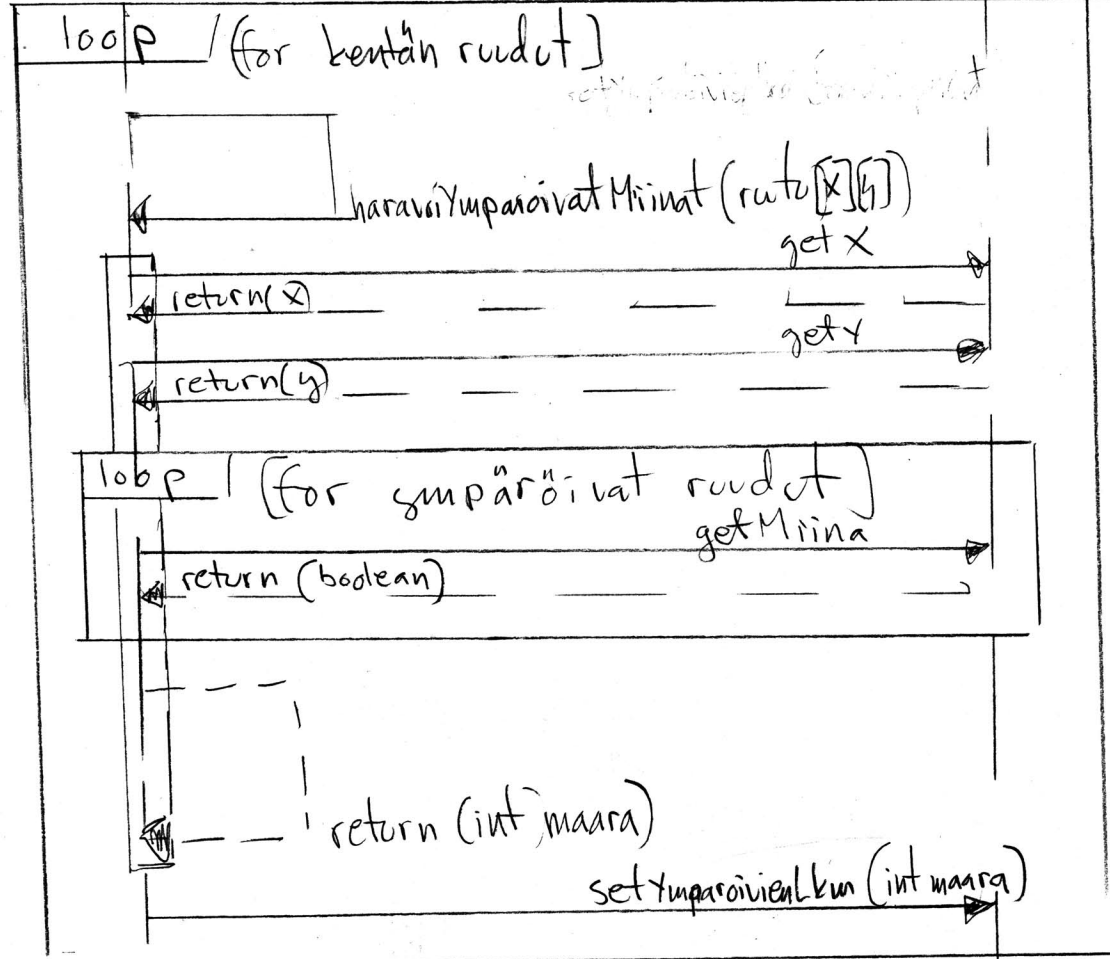 loop [for kentän ruudut]
haravoiYmparoivatMiinat(ruutu[x][y])
getX
return(x)
getY
return(y)
loop [for ympäröivat ruudut]
getMiina
return (boolean)
return (int maara)
setYmparoivienLkm (int maara)